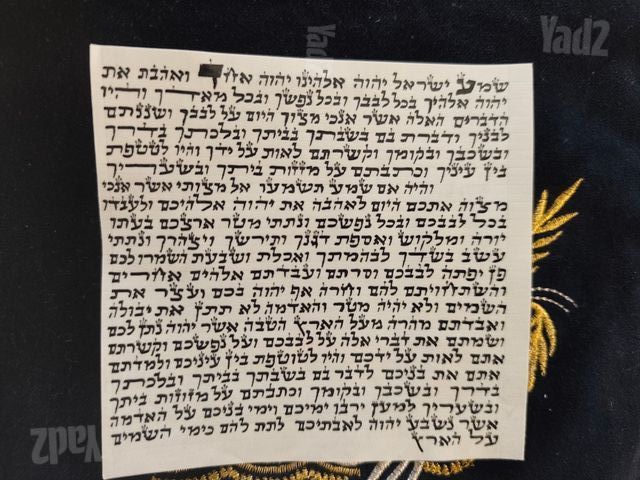 Yad2
Yad2
שמע ישראל יהוה אלהינו יהוה אחד ואהבת את
יהוה אלהיך בכל לבבך ובכל נפשך ובכל מאדך והיו
הדברים האלה אשר אנכי מצוך היום על לבבך ושננתם
לבניך ודברת בם בשבתך בביתך ובלכתך בדרך
ובשכבך ובקומך וקשרתם לאות על ידך והיו לטטפת
בין עיניך וכתבתם על מזזות ביתך ובשעריך
והיה אם שמע תשמעו אל מצותי אשר אנכי
מצוה אתכם היום לאהבה את יהוה אלהיכם ולעבדו
בכל לבבכם ובכל נפשכם ונתתי מטר ארצכם בעתו
יורה ומלקוש ואספת דגנך ותירשך ויצהרך ונתתי
עשב בשדך לבהמתך ואכלת ושבעת השמרו לכם
פן יפתה לבבכם וסרתם ועבדתם אלהים אחרים
והשתחויתם להם וחרה אף יהוה בכם ועצר את
השמים ולא יהיה מטר והאדמה לא תתן את יבולה
ואבדתם מהרה מעל הארץ הטבה אשר יהוה נתן לכם
ושמתם את דברי אלה על לבבכם ועל נפשכם וקשרתם
אתם לאות על ידכם והיו לטוטפת בין עיניכם ולמדתם
אתם את בניכם לדבר בם בשבתך בביתך ובלכתך
בדרך ובשכבך ובקומך וכתבתם על מזוזות ביתך
ובשעריך למען ירבו ימיכם וימי בניכם על האדמה
אשר נשבע יהוה לאבתיכם לתת להם כימי השמים
על הארץ
Yad2
Yad2